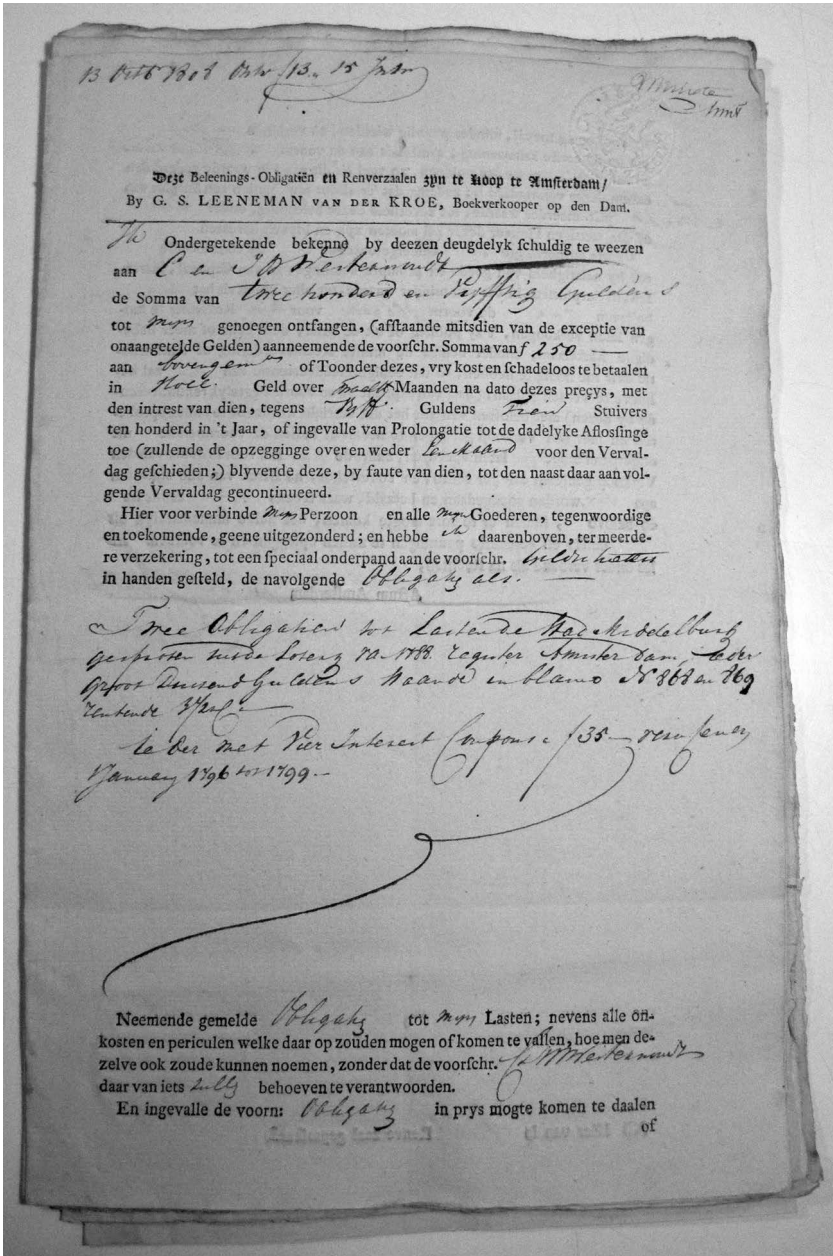 13 1808 13 15
Minute
Deze Beleenings-Obligatiën en Renverzaalen zyn te Koop te Amsterdam/
By G. S. LEENEMAN VAN DER KROE, Boekverkooper op den Dam.
Ondergetekende bekenne by deezen deugdelyk schuldig te weezen
aan C en
de Somma van twee honderd en Vyfftig Guldens
tot myn genoegen ontfangen, (afstaande mitsdien van de exceptie van
onaangetelde Gelden) aanneemende de voorschr. Somma van ƒ 250 —
aan of Toonder dezes, vry kost en schadeloos te betaalen
in Holl. Geld over twaelff Maanden na dato dezes precys, met
den intrest van dien, tegens Vyff Guldens Tien Stuivers
ten honderd in 't Jaar, of ingevalle van Prolongatie tot de dadelyke Aflossinge
toe (zullende de opzegginge over en weder Een Maand voor den Verval-
dag geschieden;) blyvende deze, by faute van dien, tot den naast daar aan vol-
gende Vervaldag gecontinueerd.
Hier voor verbinde myn Perzoon en alle myn Goederen, tegenwoordige
en toekomende, geene uitgezonderd; en hebbe ik daarenboven, ter meerde-
re verzekering, tot een speciaal onderpand aan de voorschr.
in handen gesteld, de navolgende Obligatie als. —
Twee Obligatien tot Laste de Stad Middelburg
1788. Register Amsterdam, ieder
groot Duisend Guldens Staande in blanco N 868 en 869
ieder met Vier Interest Coupons ƒ 35 —
January 1796 tot 1799 —
Neemende gemelde Obligatie tot myn Lasten; nevens alle on-
kosten en periculen welke daar op zouden mogen of komen te vallen, hoe men de-
zelve ook zoude kunnen noemen, zonder dat de voorschr.
daar van iets zulle behoeven te verantwoorden.
En ingevalle de voorn: Obligatie in prys mogte komen te daalen
of